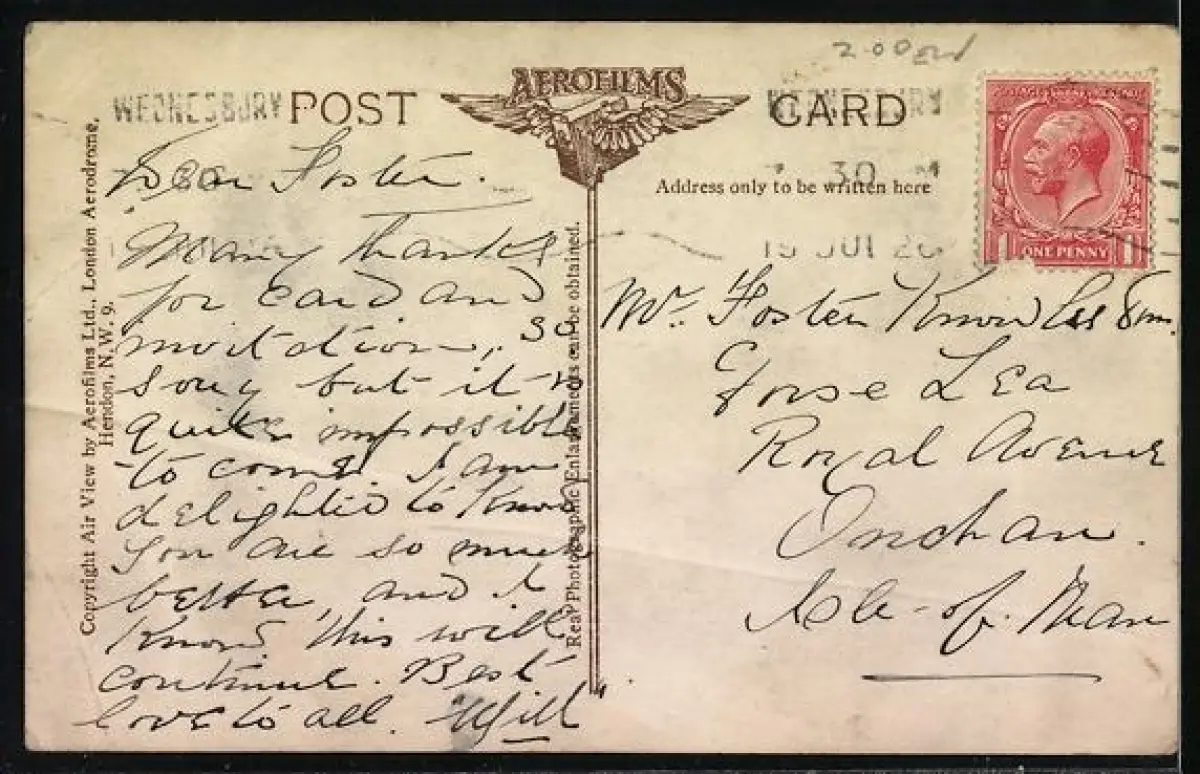 2.00
WEDNESBURY
WEDNESBURY
POST
AEROFILMS
CARD
30 M
19 JUL 26
Address only to be written here
ONE PENNY
Copyright Air View by Aerofilms Ltd., London Aerodrome,
Hendon, N.W. 9.
Real Photographic Enlargements can be obtained.
Dear Foster.
Many thanks
for card and
invitation, so
sorry but it is
quite impossible
to come. I am
delighted to know
you are so much
better, and I
know this will
continue. Best
love to all. "Will"
Mr. Foster Knowles
Lea
Royal Avenue
Onchan.
Isle-of-Man